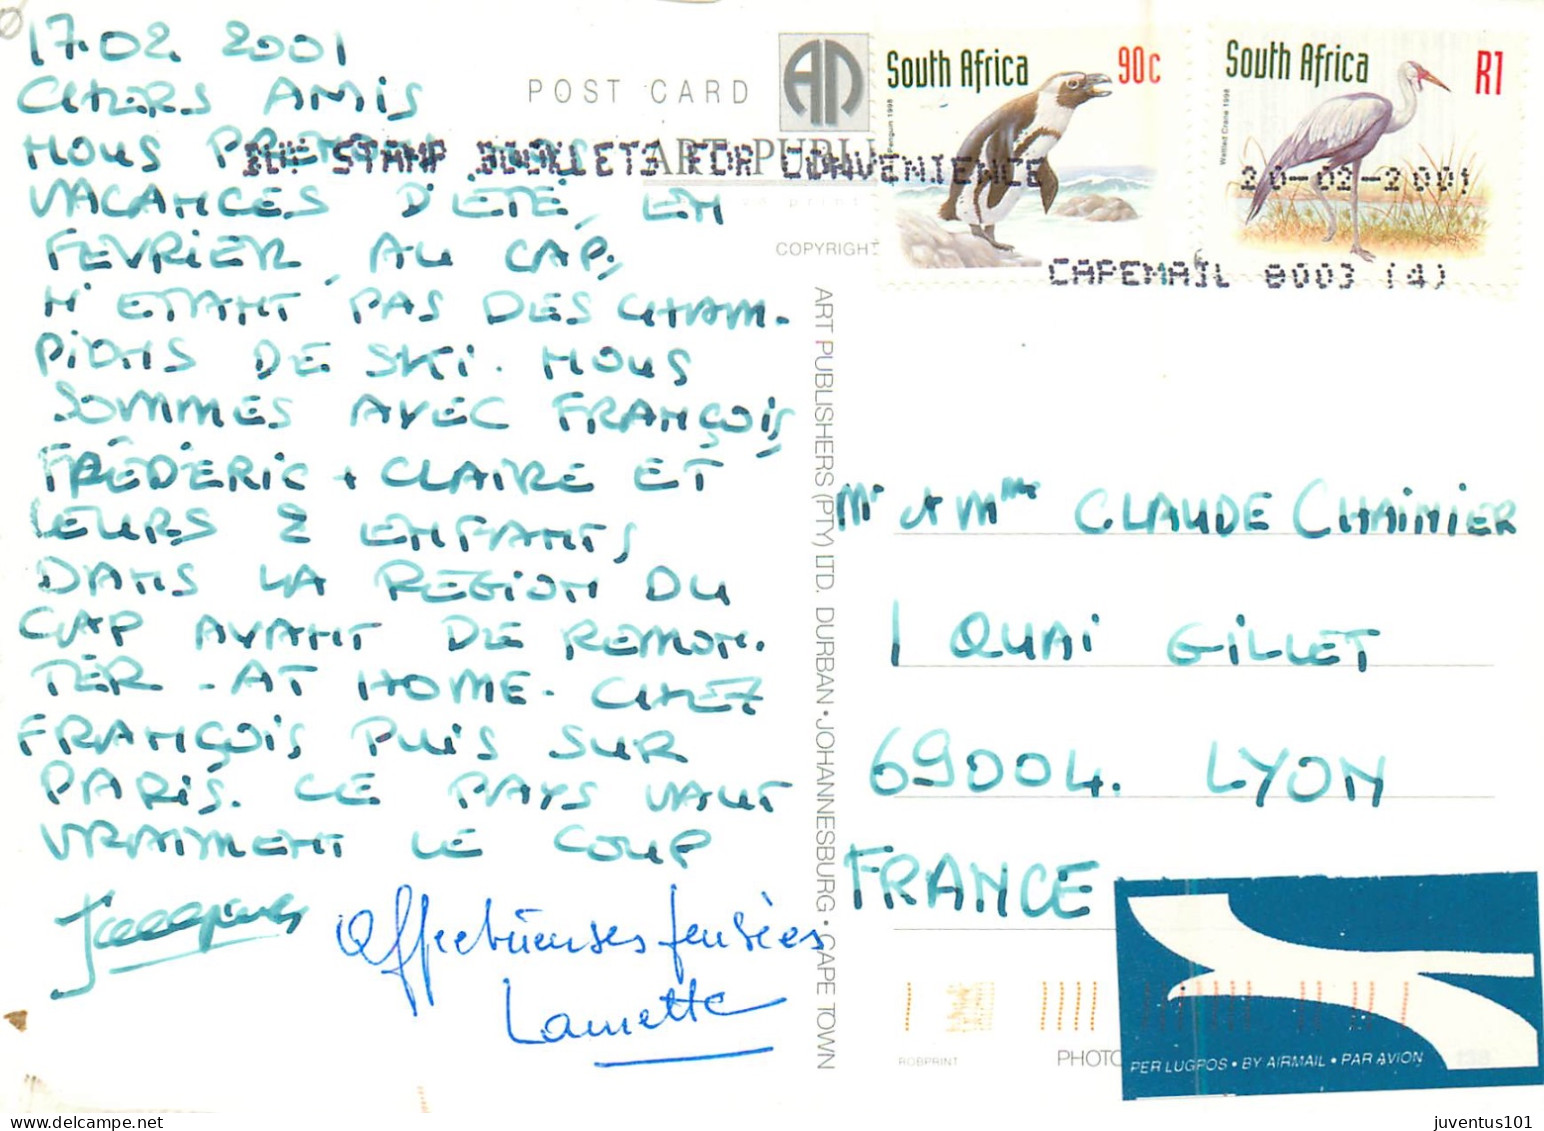 17.02 2001
CHERS AMIS
NOUS PRENONS NOS
VACANCES D'ETÉ, EN
FEVRIER, AU CAP,
N'ETANT PAS DES CHAM-
PIONS DE SKI. NOUS
SOMMES AVEC FRANÇOIS,
FRÉDÉRIC + CLAIRE ET
LEURS 2 ENFANTS,
DANS LA REGION DU
CAP AVANT DE REMON-
TER - AT HOME - CHEZ
FRANÇOIS PUIS SUR
PARIS. LE PAYS VAUT
VRAIMENT LE COUP
Jacques
Affectueuses pensées
POST CARD
ART PUBLI
COPYRIGHT
STAMP BOOKLETS FOR CONVENIENCE
South Africa 90c
Penguin 1998
South Africa R1
Wattled Crane 1998
20-02-2001
CAPEMAIL 8003 (4)
ART PUBLISHERS (PTY) LTD. DURBAN • JOHANNESBURG • CAPE TOWN
Mr et Mme CLAUDE CHAINIER
1 QUAI GILLET
69004. LYON
FRANCE
ROBPRINT
PHOTO
PER LUGPOS • BY AIRMAIL • PAR AVION
juventus101